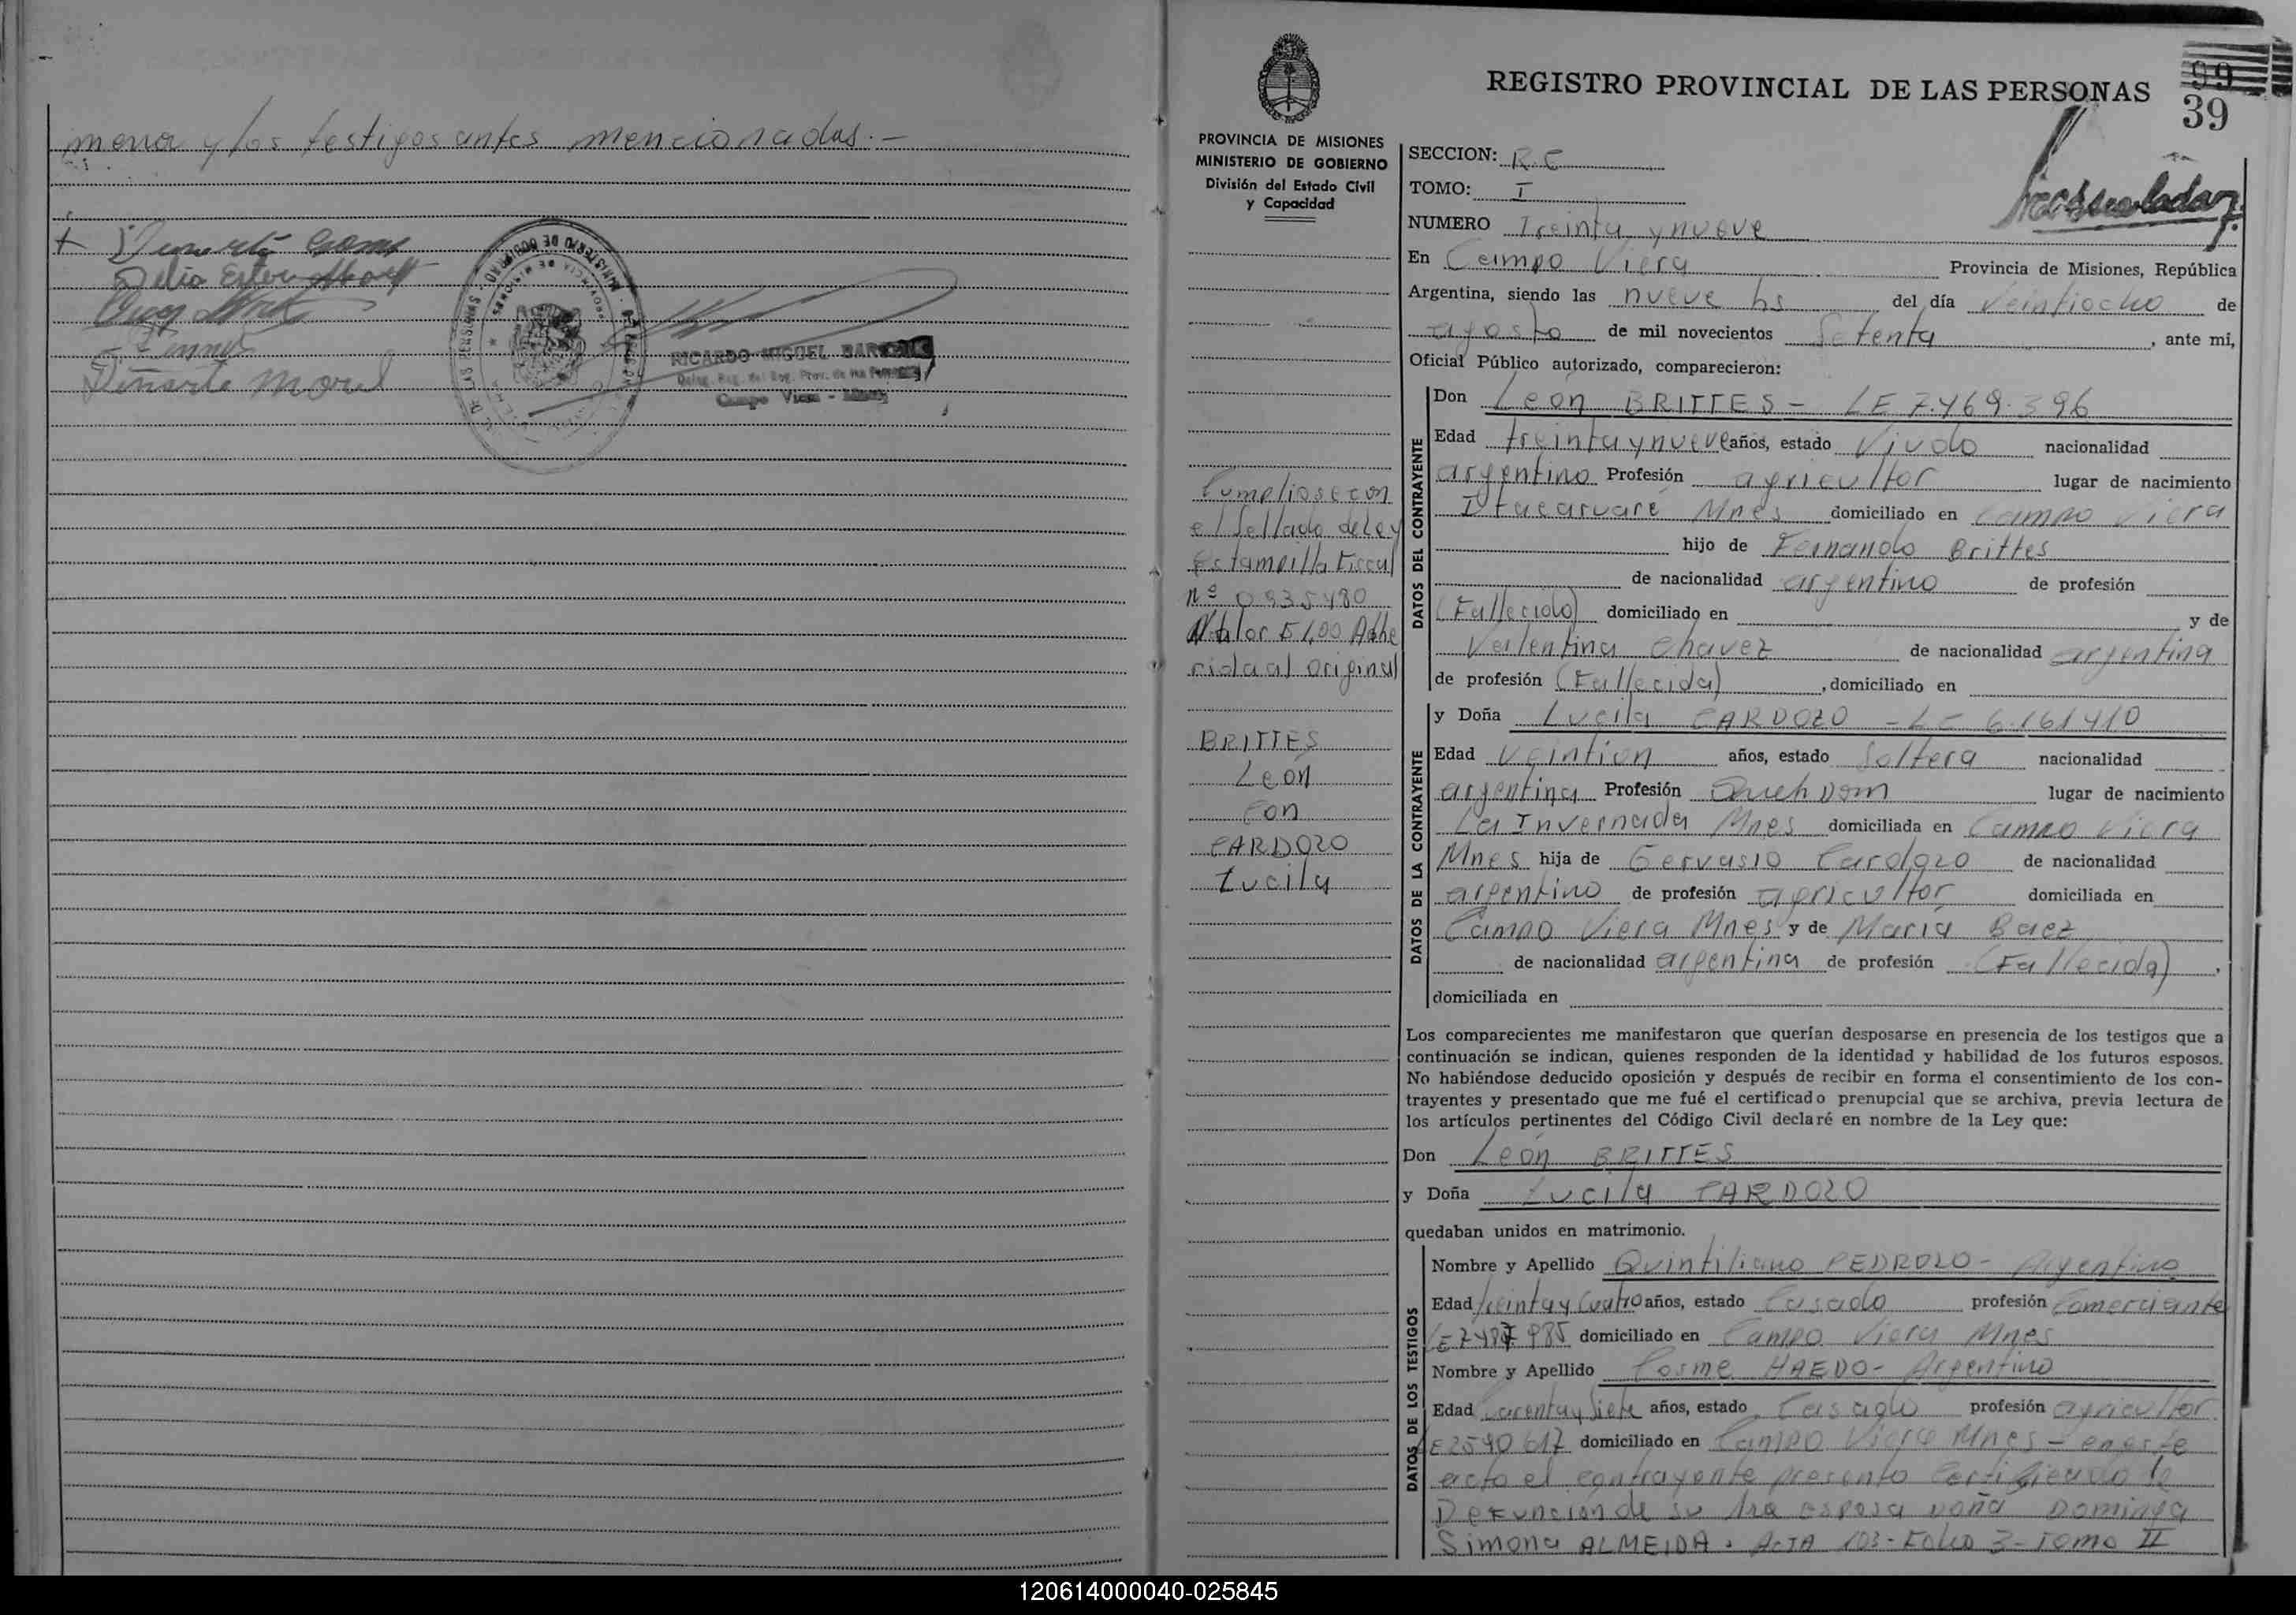 menor y los testigos antes mencionados.-
Delia Ester
Morel
MINISTERIO DE GOBIERNO
RICARDO MIGUEL
Campo Viera -
REGISTRO PROVINCIAL DE LAS PERSONAS
99
39
PROVINCIA DE MISIONES
MINISTERIO DE GOBIERNO
División del Estado Civil
y Capacidad
Cumpliose con
el Sellado de Ley
Estampilla Fiscal
Nº 0935480
Valor $ 1,00 Adhe
rida al original
BRITTES
León
con
CARDOZO
Lucila
SECCION: R.C
TOMO: I
NUMERO Treinta y nueve
En Campo Viera Provincia de Misiones, República
Argentina, siendo las nueve hs del día veintiocho de
agosto de mil novecientos Setenta, ante mi,
Oficial Público autorizado, comparecieron:
DATOS DEL CONTRAYENTE
Don León BRITTES - LE 7.469.396
Edad treinta y nueve años, estado Viudo nacionalidad
argentino Profesión agricultor lugar de nacimiento
Itacaruaré Mnes domiciliado en Campo Viera
hijo de Fernando Brittes
de nacionalidad argentino de profesión
(Fallecido) domiciliado en y de
Valentina Chavez de nacionalidad argentina
de profesión (Fallecida), domiciliado en
DATOS DE LA CONTRAYENTE
y Doña Lucila CARDOZO - LC 6.161.410
Edad Veintiun años, estado Soltera nacionalidad
argentina Profesión Queh Dom lugar de nacimiento
La Invernada Mnes domiciliada en Campo Viera
Mnes hija de Gervasio Cardozo de nacionalidad
argentino de profesión agricultor domiciliada en
Campo Viera Mnes y de María Baez
de nacionalidad argentina de profesión (Fallecida),
domiciliada en
Los comparecientes me manifestaron que querían desposarse en presencia de los testigos que a
continuación se indican, quienes responden de la identidad y habilidad de los futuros esposos.
No habiéndose deducido oposición y después de recibir en forma el consentimiento de los con-
trayentes y presentado que me fué el certificado prenupcial que se archiva, previa lectura de
los artículos pertinentes del Código Civil declaré en nombre de la Ley que:
Don León BRITTES
y Doña Lucila CARDOZO
quedaban unidos en matrimonio.
DATOS DE LOS TESTIGOS
Nombre y Apellido Quintiliano PEDROZO - Argentino
Edad treinta y Cuatro años, estado Casado profesión Comerciante
LE 7487985 domiciliado en Campo Viera Mnes
Nombre y Apellido Cosme HAEDO - Argentino
Edad Carenta y Siete años, estado Casado profesión agricultor
LE 2540617 domiciliado en Campo Viera Mnes - en este
acto el contrayente presento Certificado de
Defuncion de su 1ra esposa Doña Dominga
Simona ALMEIDA. ACTA 103 - Folio 3 - Tomo II
120614000040-025845